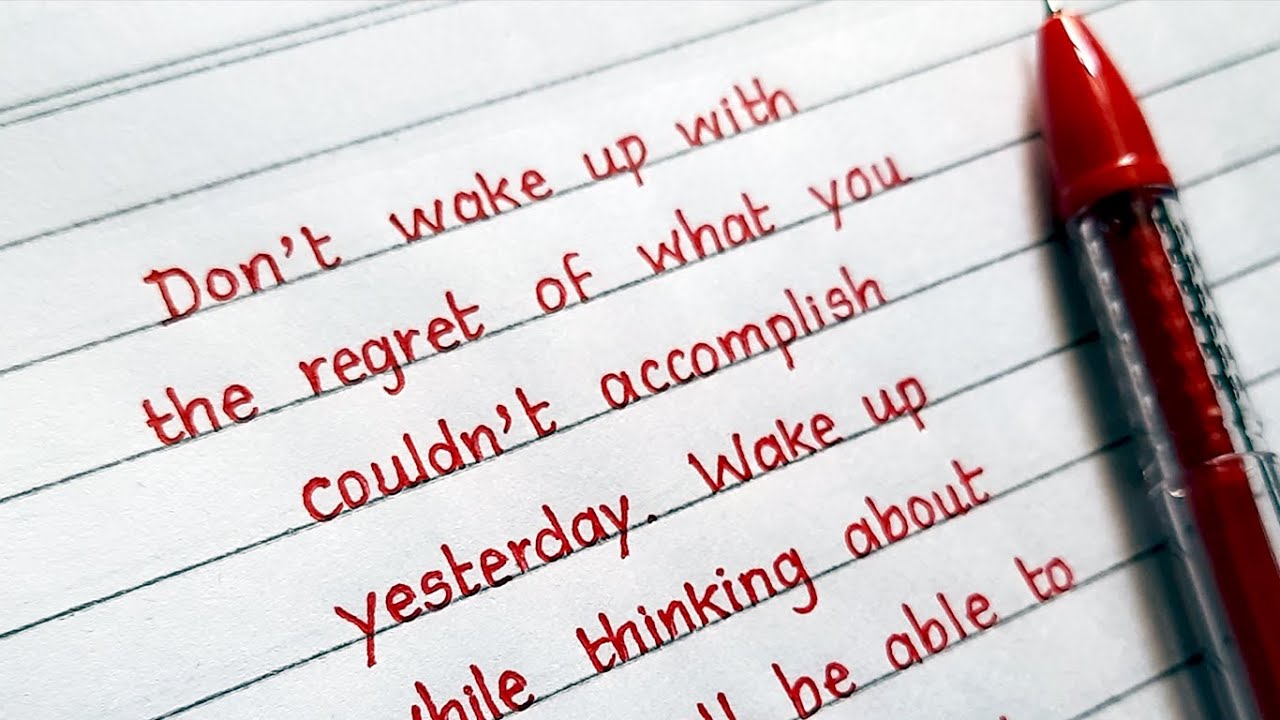 Don't wake up with
the regret of what you
couldn't accomplish
yesterday. Wake up
while thinking about
be able to